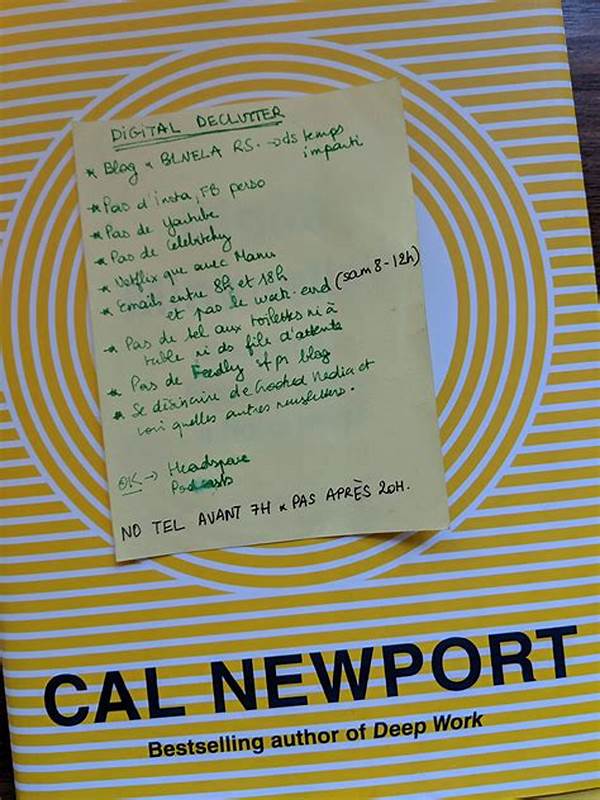 DIGITAL DECLUTTER
* Blog & BLNELA RS. → ds temps
imparti
* Pas d'insta, FB perso
* Pas de Youtube
* Pas de Celebitchy
* Netflix que avec Manu
* Emails entre 8h et 18h
et pas le week-end (sam 8-12h)
* Pas de tel aux toilettes ni à
table ni ds file d'attente
* Pas de Feedly sf pr blog
* Se désinscrire de Crooked Media et
voir quelles autres newsletters.
OK → Headspace
Podcasts
NO TEL AVANT 7H & PAS APRÈS 20H.
CAL NEWPORT
Bestselling author of Deep Work